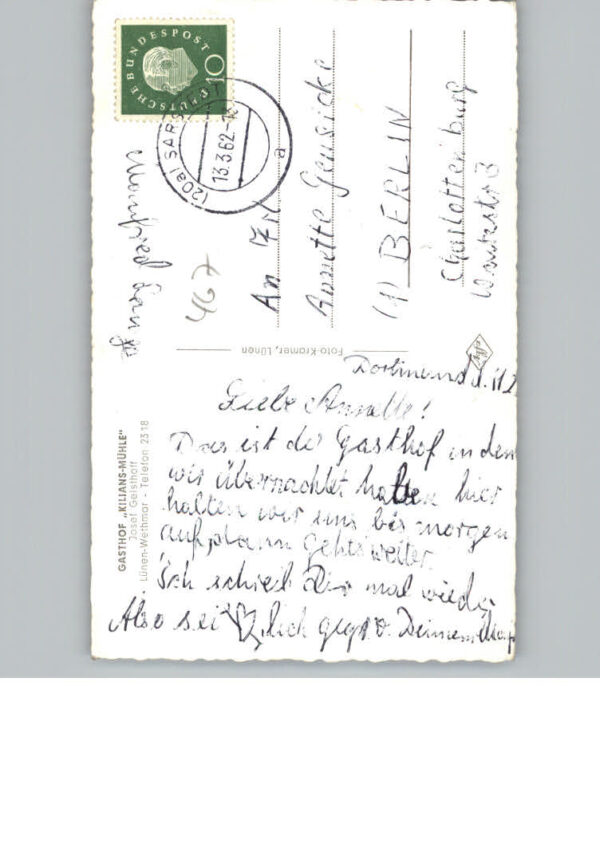 DEUTSCHE BUNDESPOST
10
(20a) SARS
13.3.62-
a
Manfred
An
Annette
(1) BERLIN
Charlottenburg
Foto-Kramer, Lünen
GASTHOF „KILIANS-MÜHLE"
Josef Geisthoff
Lünen-Wethmar - Telefon 2318
Dortmund d.
Liebe Annette!
Das ist der Gasthof in dem
wir übernachtet haben hier
halten wir uns bis morgen
auf, dann gehts weiter.
Ich schreib Dir mal wieder
Also sei lich gegr. v.